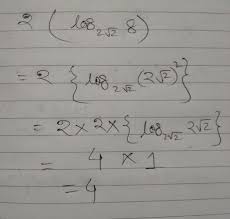 2 (log_{2√2} 8)
= 2 {log_{2√2} (2√2)^2}
= 2 × 2 × {log_{2√2} 2√2}
= 4 × 1
= 4